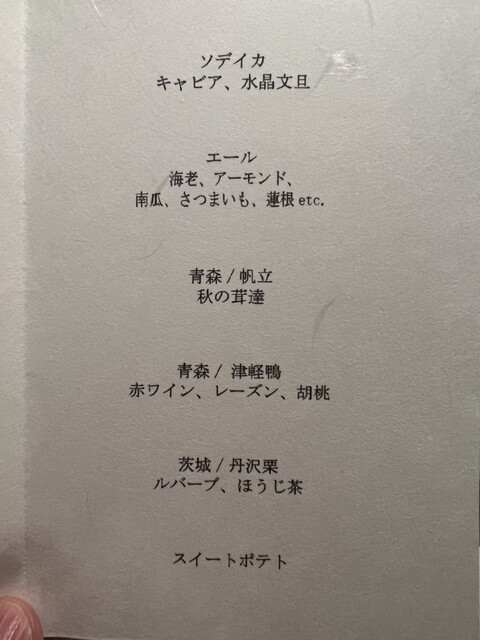 ソデイカ
キャビア、水晶文旦
エール
海老、アーモンド、
南瓜、さつまいも、蓮根 etc.
青森 / 帆立
秋の茸達
青森 / 津軽鴨
赤ワイン、レーズン、胡桃
茨城 / 丹沢栗
ルバーブ、ほうじ茶
スイートポテト